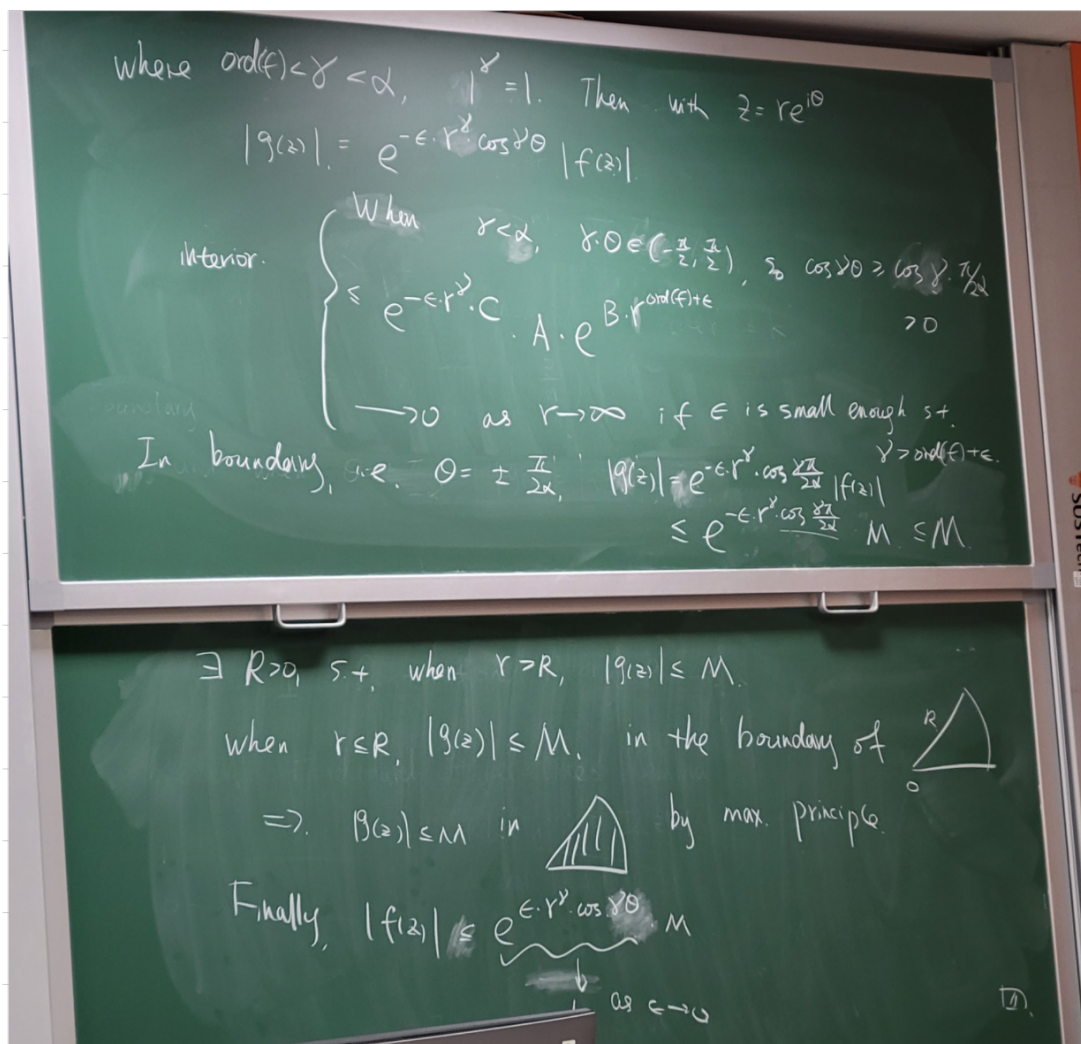 where ord(f) < γ < α, 1^γ = 1. Then with z = re^{iθ}
|g(z)| = e^{-ε·r^γ·cos γθ} |f(z)|
When γ < α, γ·θ ∈ (-π/2, π/2), so cos γθ ≥ cos γ·π/2α
interior.
> 0
≤ e^{-ε·r^γ·C} · A · e^{B·r^{ord(f)+ε}}
→ 0 as r → ∞ if ε is small enough s.t.
γ > ord(f)+ε.
In boundary, i.e. θ = ± π/2α, |g(z)| = e^{-ε·r^γ·cos γπ/2α} |f(z)|
≤ e^{-ε·r^γ·cos γπ/2α} M ≤ M.
∃ R>0, s.t. when r > R, |g(z)| ≤ M.
when r ≤ R, |g(z)| ≤ M. in the boundary of
R
0
⇒. |g(z)| ≤ M in by max. principle.
Finally, |f(z)| ≤ e^{ε·r^γ·cos γθ} · M
↓
as ε → 0
SUSTech